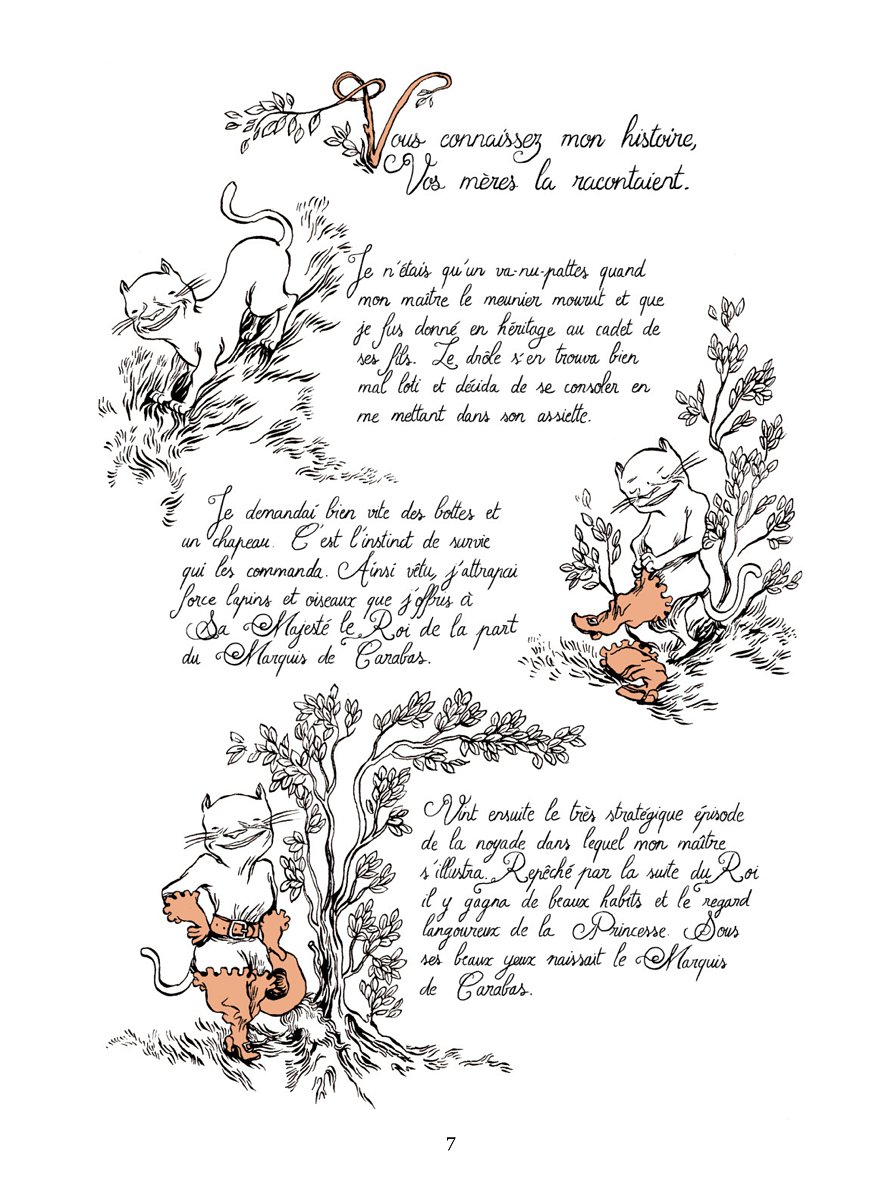 Vous connaissez mon histoire,
Vos mères la racontaient.
Je n'étais qu'un va-nu-pattes quand
mon maître le meunier mourut et que
je fus donné en héritage au cadet de
ses fils. Le drôle s'en trouva bien
mal loti et décida de se consoler en
me mettant dans son assiette.
Je demandai bien vite des bottes et
un chapeau. C'est l'instinct de survie
qui les commanda. Ainsi vêtu, j'attrapai
force lapins et oiseaux que j'offris à
Sa Majesté le Roi de la part
du Marquis de Carabas.
Vint ensuite le très stratégique épisode
de la noyade dans lequel mon maître
s'illustra. Repêché par la suite du Roi
il y gagna de beaux habits et le regard
langoureux de la Princesse. Sous
ses beaux yeux naissait le Marquis
de Carabas.
7